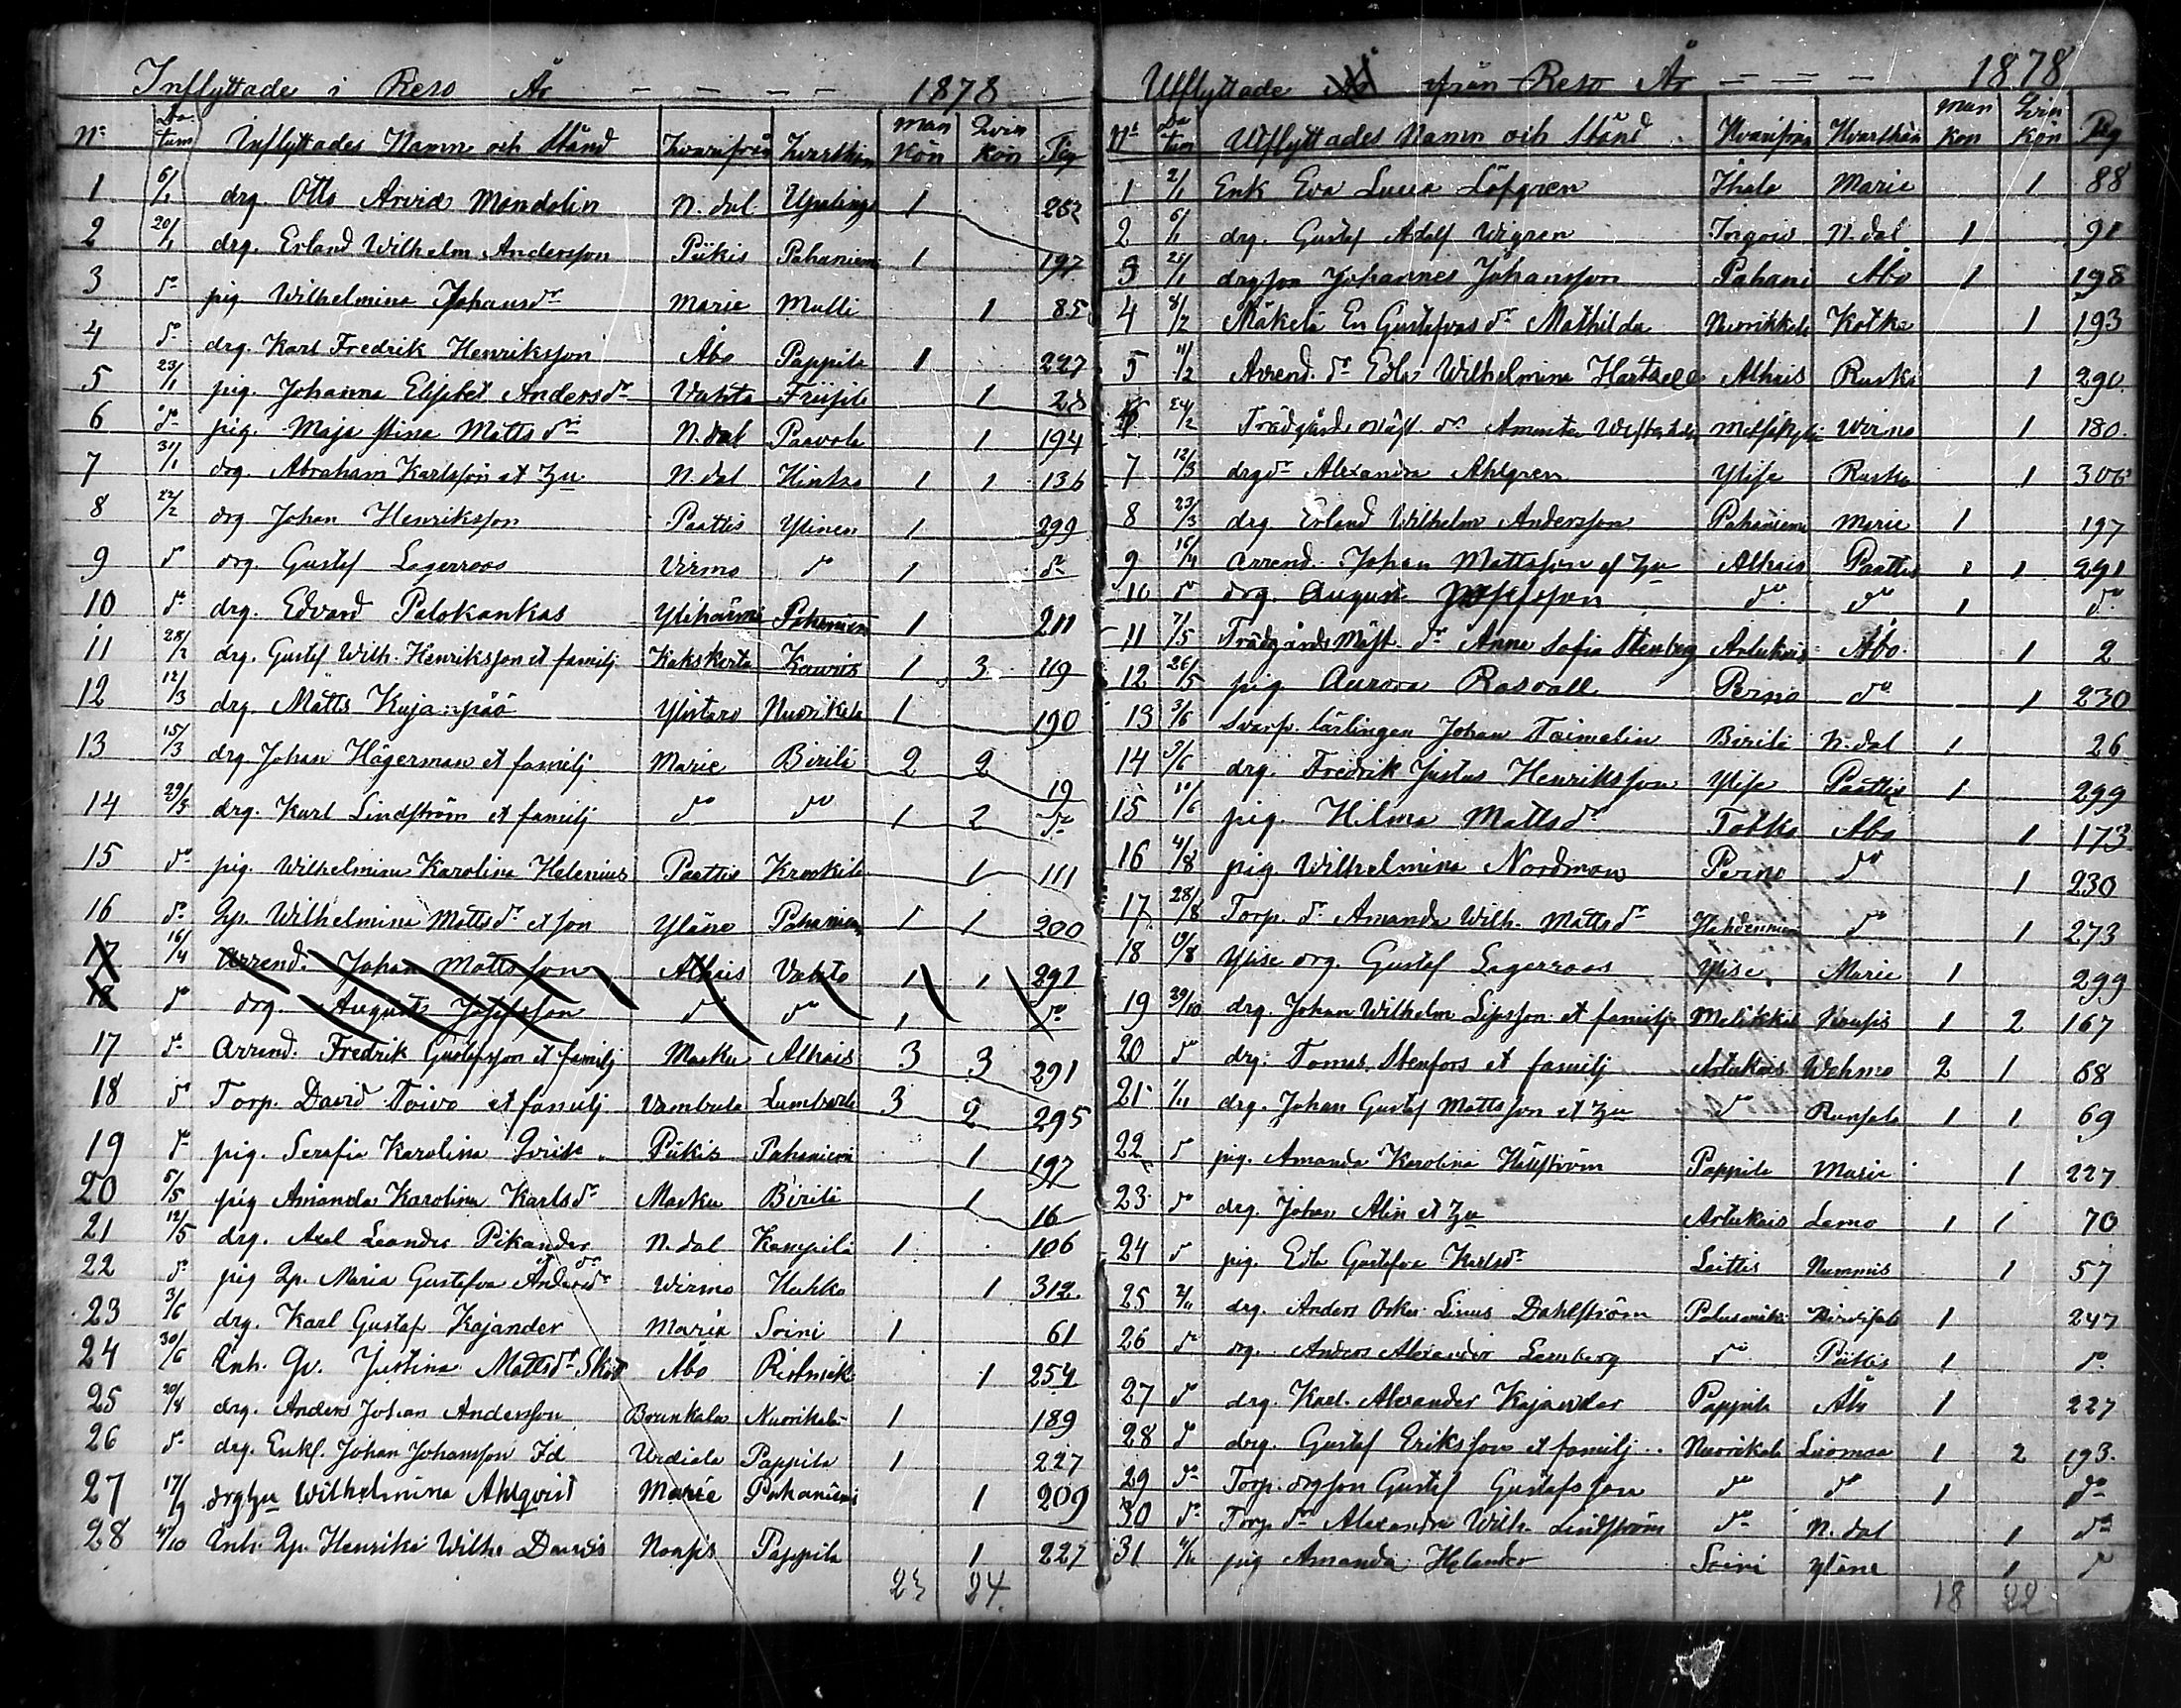 Inflyttade i Reso År - - - - 1878
No Datum Inflyttades Namn och Stånd Hvarifrån Hvarthän Man Kön Qvin Kön Pag
1 6/1 drg. Otto Arvid Mandolin N.dal 1 262
2 20/1 drg. Erland Wilhelm Andersson Piikis Pahaniemi 1 197
3 do pig. Wilhelmina Johansdr Marie Mulli 1 85
4 do drg. Karl Fredrik Henriksson Åbo Pappila 1 227
5 23/1 pig. Johanna Elisabet Andersdr Vahto 1 28
6 do pig. Maja Stina Mattsdr N.dal Paavola 1 194
7 31/1 drg. Abraham Karlsson et hu N.dal Hintsa 1 1 136
8 22/2 drg Johan Henriksson Paattis Ylinen 1 299
9 do drg. Gustef Lagerroos Virmo do 1 do
10 do drg. Edvard Palokankas Ylihärmä Pahaniemi 1 211
11 28/2 drg. Gustef Wilh. Henriksson et familj Kakskerta 1 3 119
12 12/3 drg. Matts Kujanpää Ylistaro Nuorikkala 1 190
13 15/3 drg Johan Hägerman et familj Marie Birilä 2 2 19
14 29/3 drg. Karl Lindström et familj do do 1 2 do
15 do pig. Wilhelmina Karolina Helenius Paattis Kraakila 1 111
16 do Qp. Wilhelmina Mattsdr et son Yläne Pahaniemi 1 1 200
17 16/4 Arrend. Johan Mattsson Alhais Vahto 1 1 291
18 do drg. August Josefsson do do 1 do
17 do Arrend. Fredrik Gustafsson et familj Masku Alhais 3 3 291
18 do Torp. David Toivo et familj Vambula Lumbarla 3 2 295
19 do pig. Serafia Karolina Qvick Piikis Pahaniemi 1 197
20 5/5 pig Amanda Karolina Karlsdr Masku Birilä 1 16
21 12/5 drg. Axel Leander Pikander N.dal Kampila 1 106
22 do pig Qp. Maria Gustafva Andersdr Wirmo Huhko 1 312
23 3/6 drg. Karl Gustaf Kajander Marie Soini 1 61
24 30/6 Enh. Qv. Justina Mattsdr Åbo 1 254
25 20/8 drg. Anders Johan Andersson Brunkala Nuorikkala 1 189
26 do drg. Enkl. Johan Johansson Id Urdiala Pappila 1 227
27 17/9 drghu Wilhelmina Ahlqvist Marie Pahaniemi 1 209
28 4/10 Enh. Qp. Henrika Wilh. Davids Nousis Pappila 1 227
23 24.
Utflyttade från Reso År - - - 1878
No Datum Utflyttades Namn och Stånd Hvarifrån Hvarthän Man Kön Qvin Kön Pag
1 2/1 Enk Eva Lovisa Löfgren Ihala Marie 1 88
2 6/1 drg. Gustaf Adolf Wigren Ingois N.dal 1 91
3 21/1 drgson Johannes Johansson Pahani Åbo 1 198
4 8/2 Mäkelä En Gustafvas dr Mathilda Nuorikkala Kotka 1 193
5 11/2 Arrend. dr Edla Wilhelmina Hartzell Alhais Rusko 1 290
24/2 Trädgårdsmäst. dr Amanda Westerholm Wirmo 1 180
7 12/3 drgdr Alexandra Ahlgren Ylise Rusko 1 306
8 23/3 drg. Erland Wilhelm Andersson Pahaniemi Marie 1 197
9 16/4 Arrend. Johan Mattsson et hu Alhais Paattis 1 1 291
10 do drg. August Josefsson do do 1 do
11 7/5 Trädgårds Mäst. dr Anna Sofia Stenberg Artukais Åbo 1 2
12 26/5 pig Aurora Rosvall Perno do 1 230
13 3/6 Svarf. lärlingen Johan Taimelin Birilä N.dal 1 26
14 9/6 drg. Fredrik Justus Henriksson Ylise Paattis 1 299
15 10/6 pig. Hilma Mattsdr Tokko Åbo 1 173
16 4/8 pig. Wilhelmina Nordman Perno do 1 230
17 28/8 Torp. dr Amanda Wilh. Mattsdr Hahdenniemi do 1 273
18 19/8 Ylise drg. Gustaf Lagerroos Ylise Marie 1 299
19 29/10 drg. Johan Wilhelm Lipsson et familj Metikkala Nousis 1 2 167
20 do drg. Tomas Stenfors et familj Artukais Wehmo 2 1 68
21 1/11 drg. Johan Gustaf Mattsson et hu do Runsala 1 1 69
22 do pig. Amanda Karolina Hällström Pappila Marie 1 227
23 do drg. Johan Alin et hu Artukais Lemo 1 1 70
24 do pig. Edla Gustafva Karlsdr Laittis Nummis 1 57
25 2/11 drg. Anders Oskar Linus Dahlström 1 247
26 do drg. Anders Alexander Lemberg do Piikis 1 do
27 do drg. Karl Alexander Kajander Pappila Åbo 1 227
28 do drg. Gustaf Eriksson et familj Nuorikkala Luomaa 1 2 193.
29 do Torp. drgson Gustaf Gustafsson do do 1 do
30 do Torp. dr Alexandra Wilh. Lindström do N.dal 1 do
31 4/11 pig Amanda Helander Soini Yläne 1 do
18 22